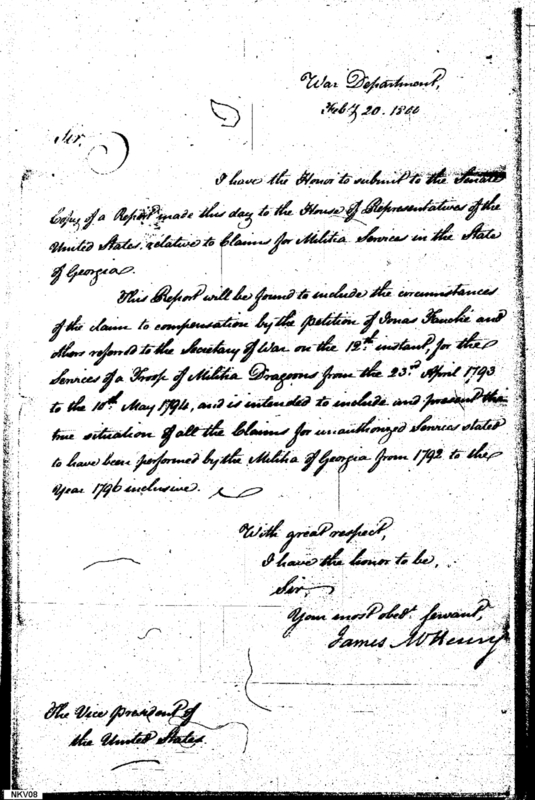 War Department,
Feby 20. 1800
Sir.
I have the Honor to submit to the Senate
Copy of a Report made this day to the House of Representatives of the
United States, relative to Claims for Militia Services in the State
of Georgia.
This Report will be found to include the circumstances
of the claim to compensation by the petition of Jonas Fauche and
others referred to the Secretary of War on the 12th instant, for the
Services of a Troop of Militia Dragoons from the 23d April 1793
to the 10th May 1794, and is intended to include and present the
true situation of all the Claims for unauthorized Services stated
to have been performed by the Militia of Georgia from 1792 to the
Year 1796 inclusive.
With great respect,
I have the honor to be,
Sir,
Your most obedt. servant,
James McHenry
The Vice President of
the United States.
NKV08